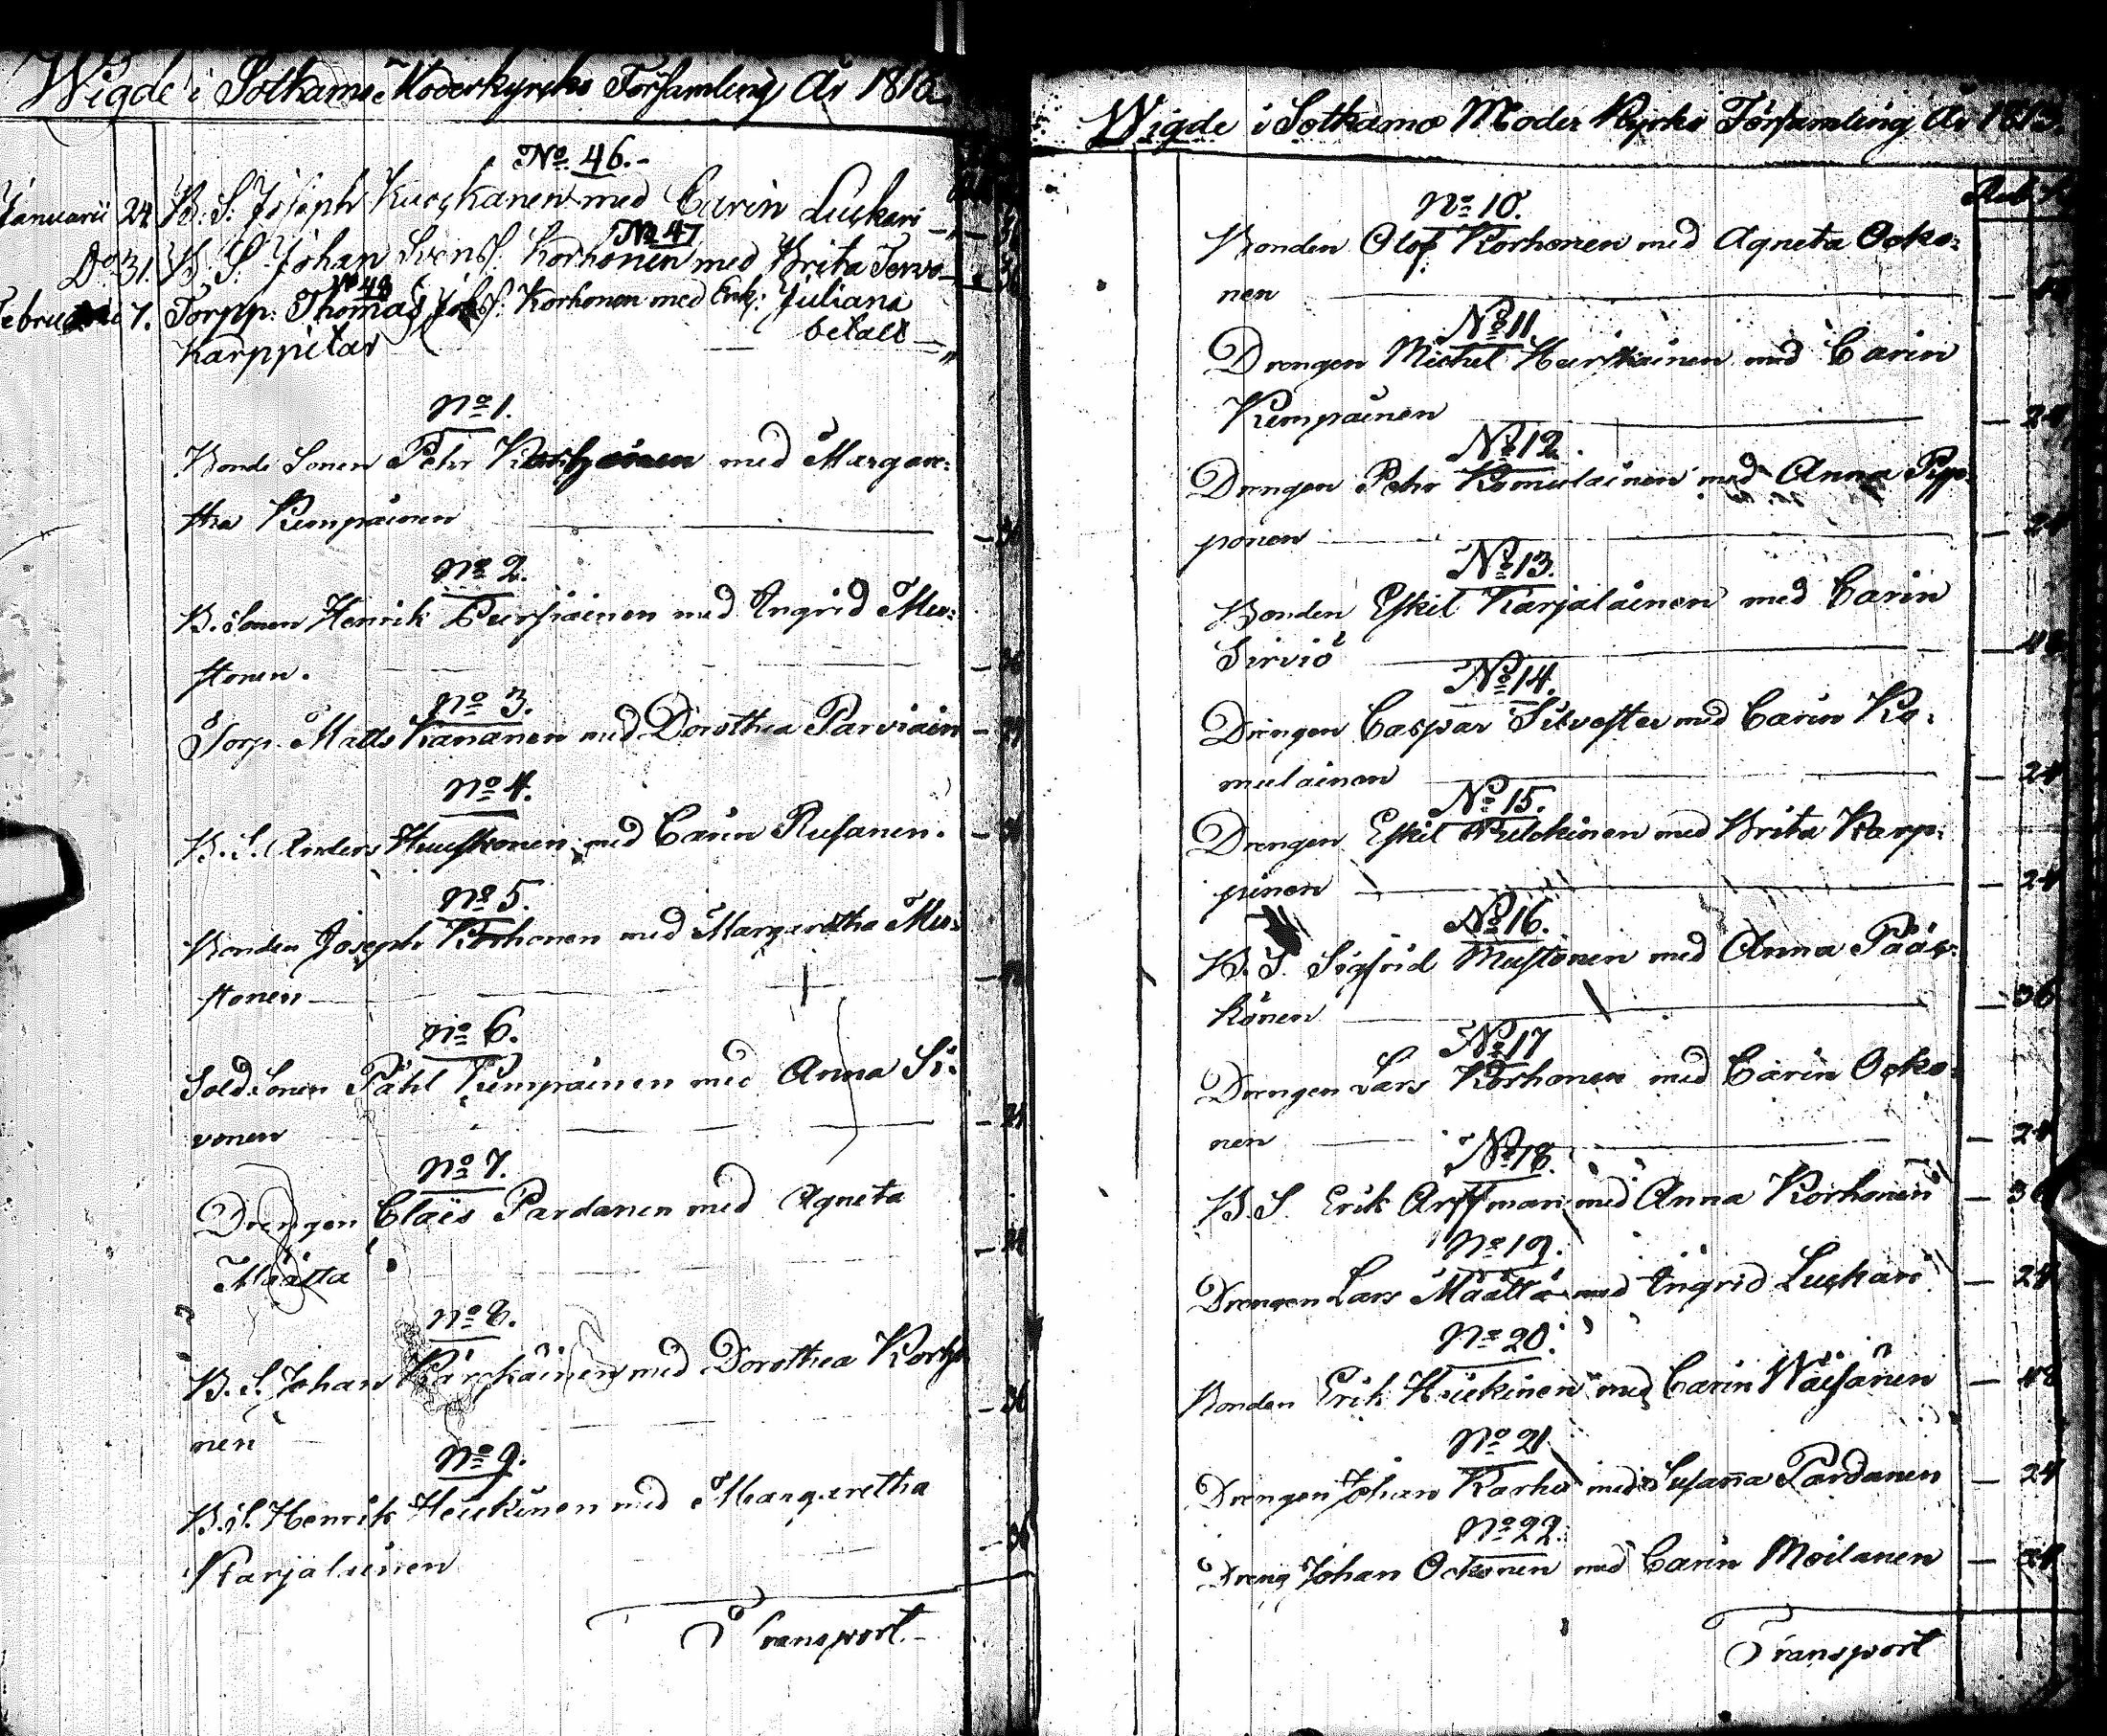 Wigde i Sotkamo Moderkyrko Församling År 1816
No. 46.
Januarii 24. B. S. Joseph Kuoskanen med Carin Luckari
No 47
Do 31. B. S. Johan Svens S. Korhonen med Brita Tervo
No 48
7. Torpp: Thomas Joh S. Korhonen med Enk: Juliana
Karppitar betalt
No 1.
Bonde Sonen Pehr med Margare=
tha Kempainen
No 2.
B. Sonen Henrik Pursiainen med Ingrid Mu=
stonen.
No 3.
Torp. Matts Kananen med Dorothea Parviain
No 4.
B. S. Anders Huuskonen med Carin Rusanen.
No 5.
Bonden Joseph Korhonen med Margaretha Mu=
stonen
No 6.
Sold Sonen Påhl Kempainen med Anna Si=
vonen
No 7.
Drengen Claës Pardanen med Agneta
Määtta
No 8.
B. S. Johan Kärckäinen med Dorothea Korho
nen
No 9.
B. S. Henrik Heickinen med Margaretha
Karjalainen
Transport
Wigde i Sotkamo Moder Kyrko Församling År 1813.
No 10.
Bonden Olof Korhonen med Agneta Ocko=
nen
No 11.
Drengen Michel med Carin
Kempainen — 24
No 12.
Drengen Pehr Komulainen med Anna Pip=
ponen — 24
No 13.
Bonden Eskil Karjalainen med Carin
Sirviö — 48
No 14.
Drengen Caspar Silvester med Carin Ko=
mulainen — 24
No 15.
Drengen Eskil med Brita Karp=
pinen — 24
No 16.
B. S. Sigfrid Mustonen med Anna Pääs=
könen — 36
No 17
Drengen Lars Korhonen med Carin Ocko=
nen — 24
No 18.
B. S. Erik Arffman med Anna Korhonen — 36
No 19.
Drengen Lars Määttä med Ingrid Luckari — 24
No 20.
Bonden Erik Heickinen med Carin Wäisänen — 48
No 21.
Drengen Johan Karhu med Susanna Pardanen — 24
No 22.
Dreng Johan Ockonen med Carin Moilanen — 24
Transport